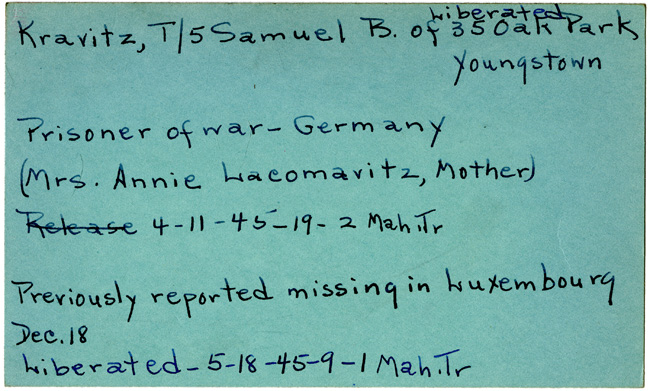 Liberated
Kravitz, T/5 Samuel B. of 35 Oak Park,
Youngstown
Prisoner of war - Germany
(Mrs. Annie Lacomavitz, Mother)
Release 4-11-45-19-2 Mah.Tr
Previously reported missing in Luxembourg
Dec. 18
Liberated - 5-18-45-9-1 Mah.Tr